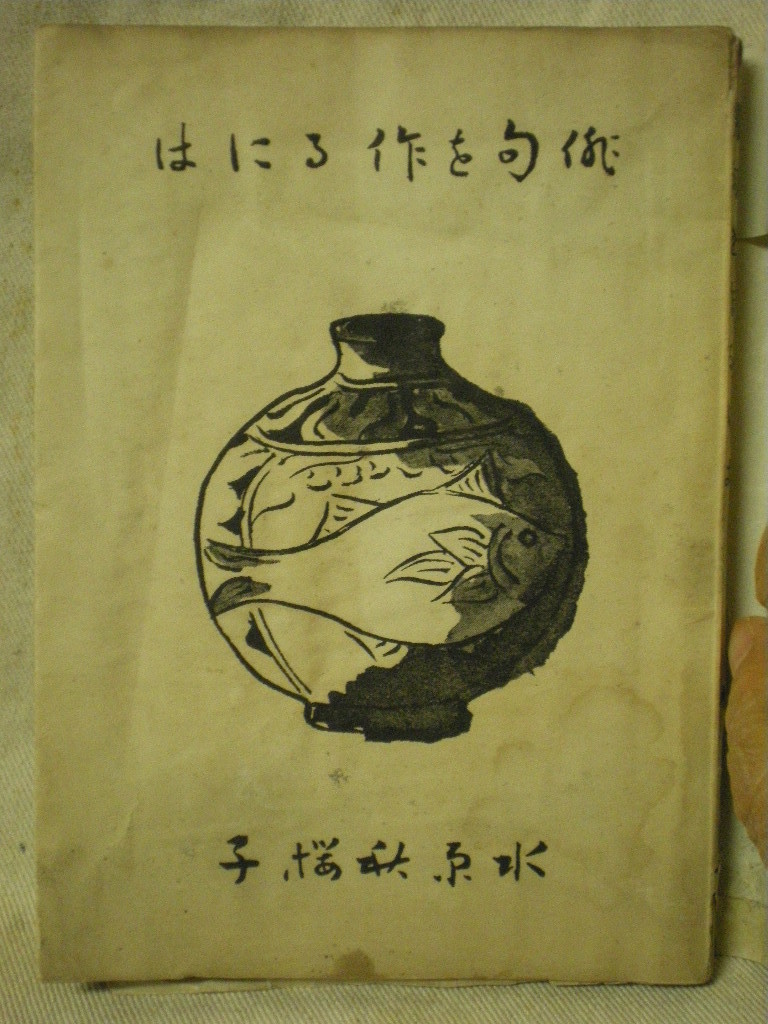 俳句を作るには
水原秋桜子